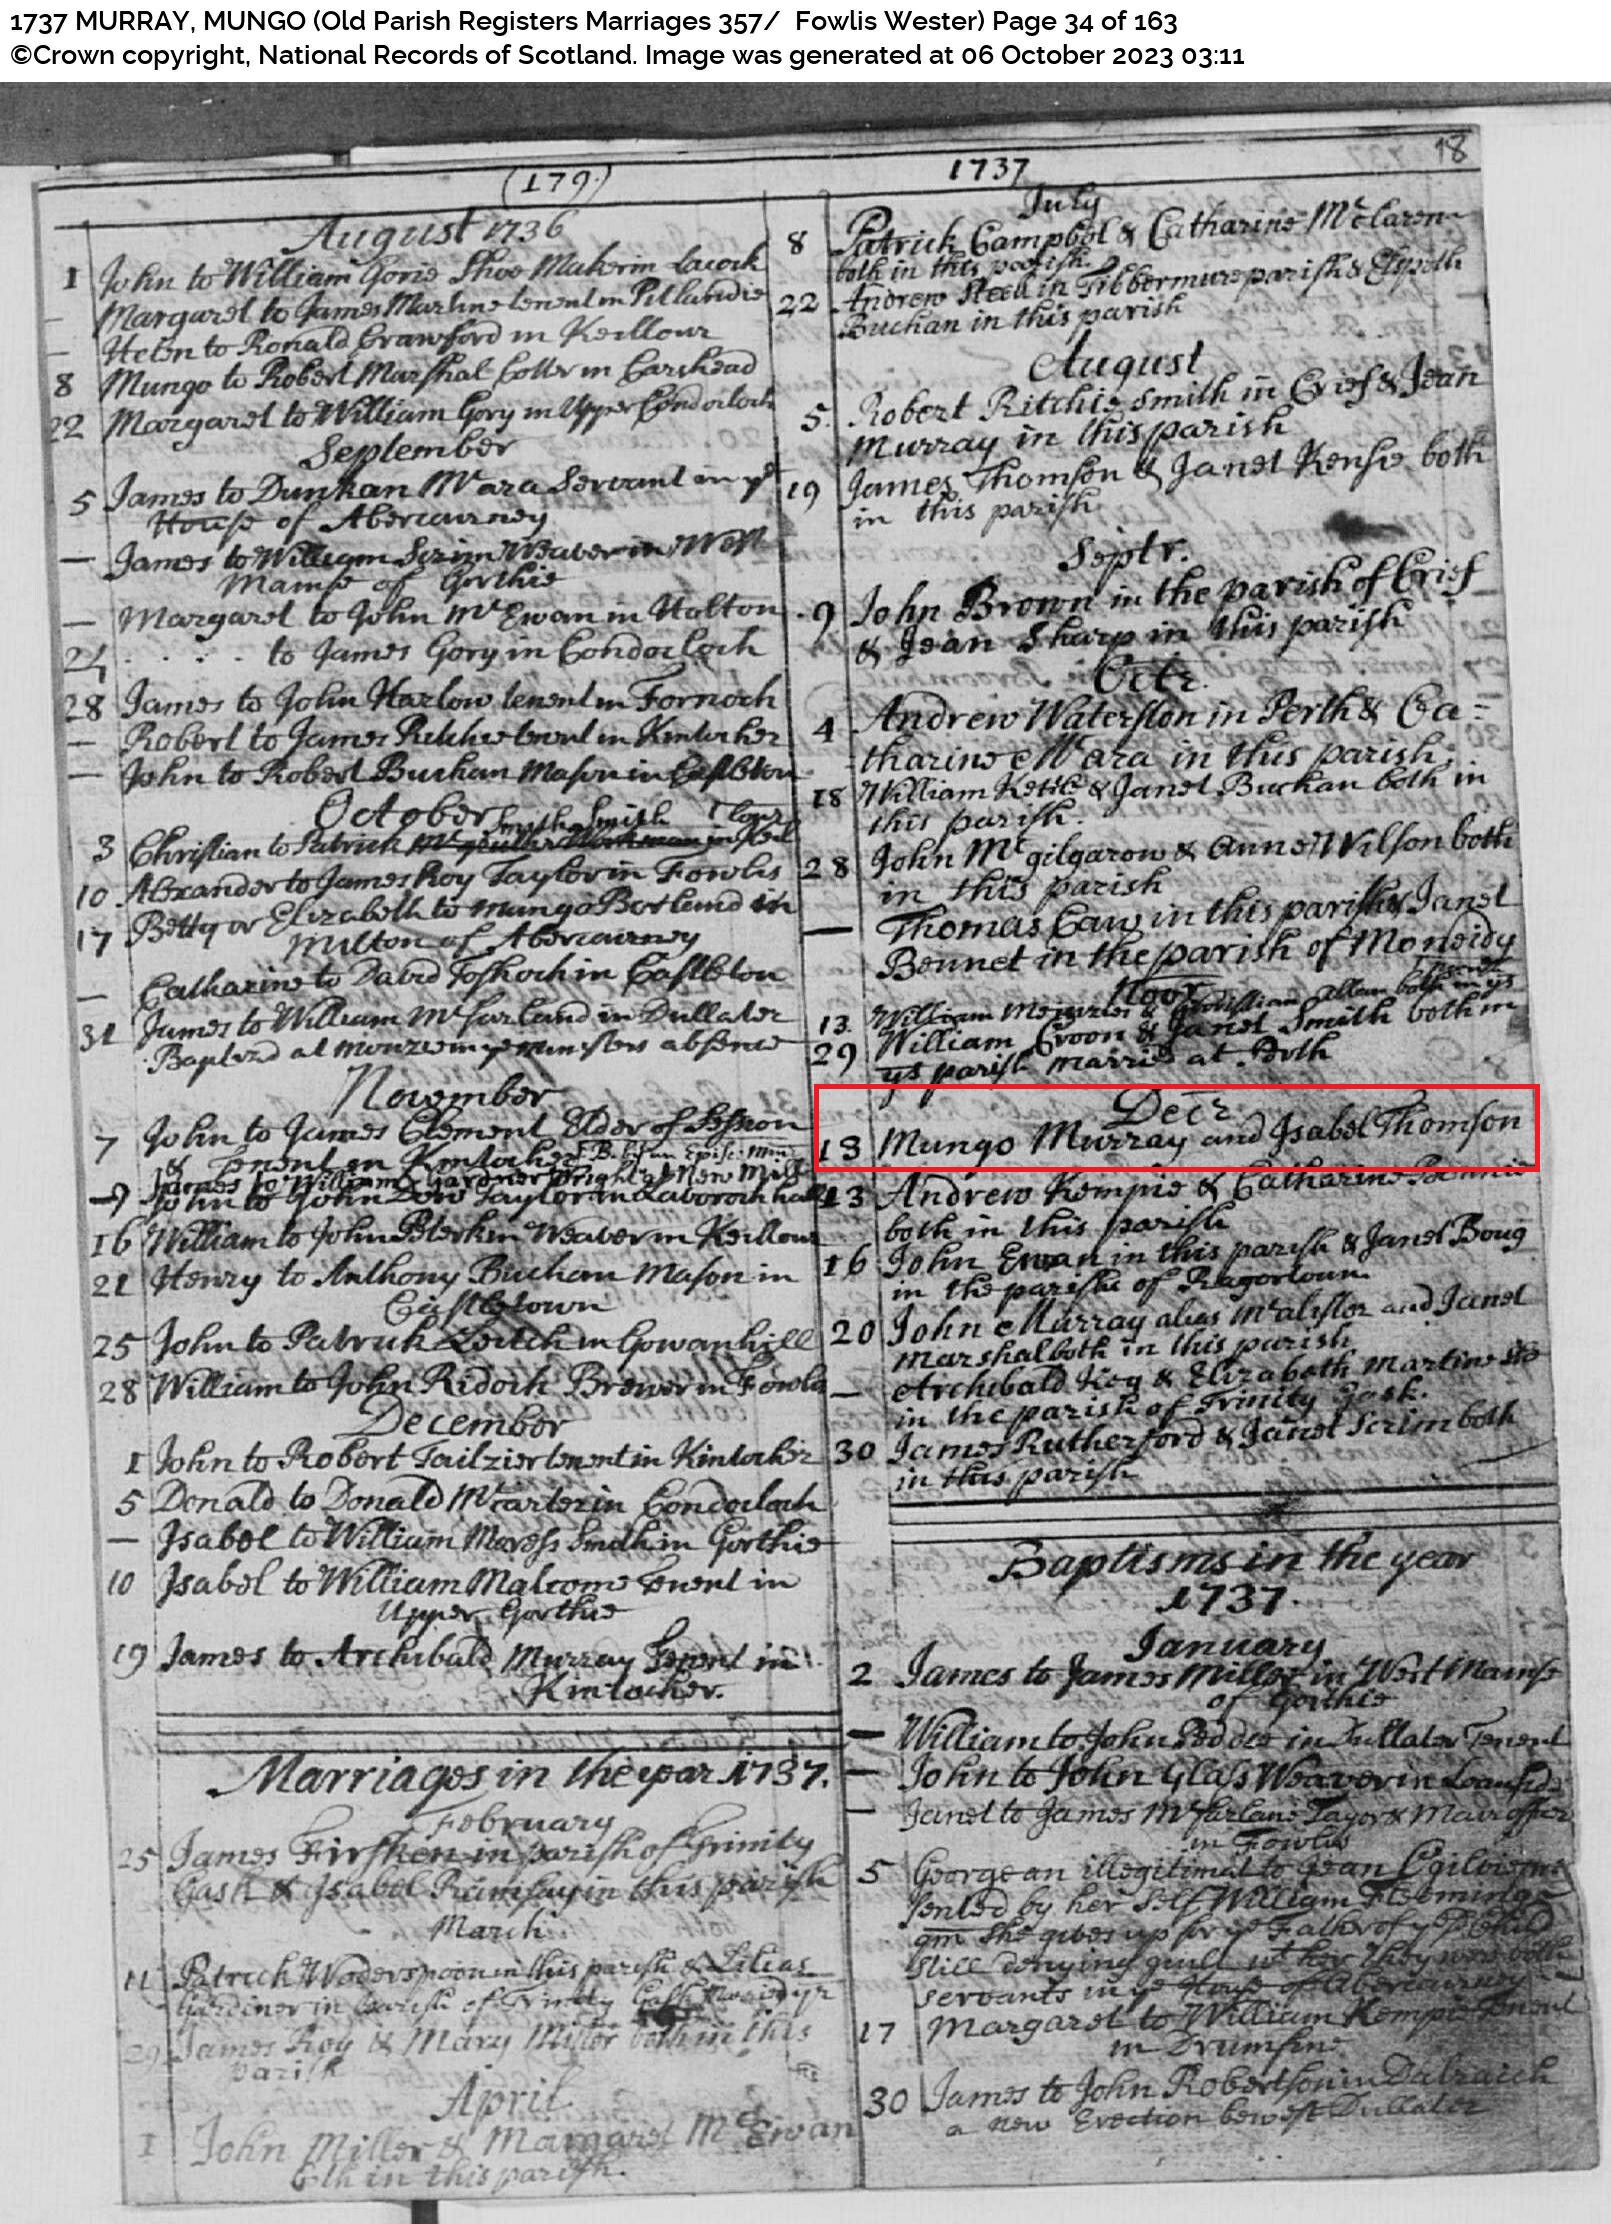 1737 MURRAY, MUNGO (Old Parish Registers Marriages 357/ Fowlis Wester) Page 34 of 163
©Crown copyright, National Records of Scotland. Image was generated at 06 October 2023 03:11
(179.)
August 1736
1 John to William Gorie Shoe Maker in Lacock
– Margaret to James Martine tenent in Pitlandie
– Helen to Ronald Crawford in Keillour
8 Mungo to Robert Marshal Cotter in Carshead
22 Margaret to William Gory in Upper Condocloch
September
5 James to Dunkan Mcara Servant in ye
House of Abercairney
– James to William Scrim Weaver in West
Mainse of Gorthie
– Margaret to John McEwan in Halton
24 . . . . to James Gory in Condocloch
28 James to John Harlow tenent in Fornoch
– Robert to James Ritchie tenent in Kintocher
– John to Robert Buchan Mason in Castleton
October
3 Christian to Patrick
10 Alexander to James Roy Taylor in Fowlis
17 Betty or Elizabeth to Mungo Borland in
Milton of Abercairney
– Catharine to David Toshoch in Castleton
31 James to William Mcfarland in Dullater
Baptized at Monzie in ye ministers absence
November
7 John to James Clement Elder of Session
& Tenent in Kintocher
James to William Gardner Wright at New Mill
9 John to John Dow Taylor in
16 William to John Peterkin Weaver in Keillour
21 Henry to Anthony Buchan Mason in
Castletown
25 John to Patrick Leitch in Gowanhill
28 William to John Ridoch Brewer in Fowlis
December
1 John to Robert Tailzier tenent in Kintocher
5 Donald to Donald Mccarter in Condocloch
– Isabel to William Smith in Gorthie
10 Isabel to William Malcome Tenent in
Upper Gorthie
19 James to Archibald Murray Tenent in
Kintocher.
Marriages in the year 1737.
February
25 James in parish of Trinity
Gask & Isabel Ramsay in this parish
March
11 Patrick Woderspoon in this parish & Lilias
Gardiner in parish of Trinity Gask
29 James Roy & Mary Miller both in this
parish
April
1 John Miller & Margaret McEwan
both in this parish.
1737
18
July
8 Patrick Campbel & Catharine Mcclaren
both in this parish
22 Andrew Steel in Tibbermure parish & Elspeth
Buchan in this parish
August
5. Robert Ritchie smith in Crief & Jean
Murray in this parish
19 James Thomson & Janet Kensie both
in this parish
Septr.
9 John Brown in the parish of Crief
& Jean Sharp in this parish
Octr.
4 Andrew Waterston in Perth & Ca=
tharine Mcara in this parish.
18 William Ketle & Janet Buchan both in
this parish.
28 John Mcgilgarow & Anne Wilson both
in this parish
– Thomas Caw in this parish & Janet
Bennet in the parish of Moneidy
Novr
13 William Menzies & Christian Allan both in ys
29 William Croon & Janet Smith both in
ys parish married at
Decr
13 Mungo Murray and Isabel Thomson
13 Andrew Kempie & Catharine
both in this parish
16 John Ewan in this parish & Janet Boug
in the parish of Ragortoun
20 John Murray alias Mcalister and Janet
Marshal both in this parish
– Archibald Keg & Elizabeth Martine
in the parish of Trinity Gask.
30 James Rutherford & Janet Scrim both
in this parish
Baptisms in the year
1737.
January
2 James to James Miller in West Mainse
of Gorthie
– William to John Peddie in Dullater Tenent
– John to John Glass Weaver in Loanside
– Janet to James Mcfarlane
in Fowlis
5 George an illegitimat to Jean Ogilvie
sented by her self William Fleeming
qm she gives up for ye Father of ye Child
still denying guilt wt her they were both
servants in ye House of Abercairney
17 Margaret to William Kempie Tenent
in Drumfine
30 James to John Robertson in Dalraich
a new Erection bewest Dullater